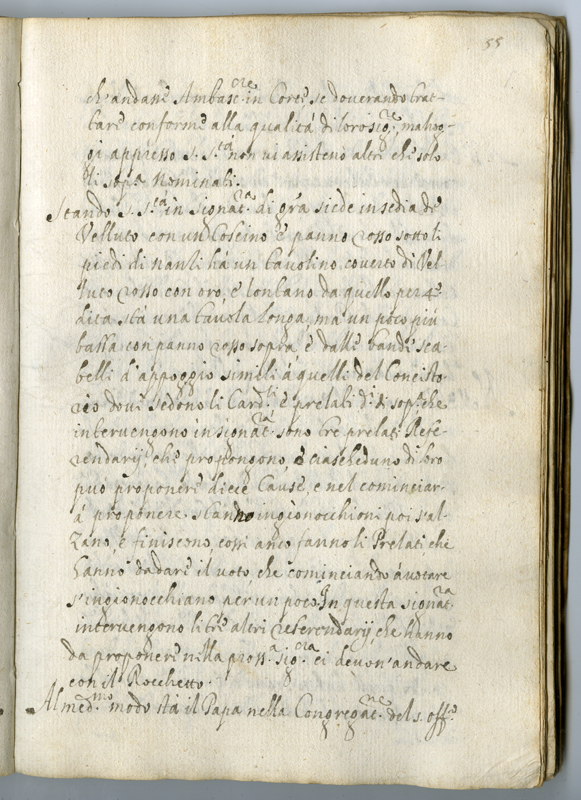 55
ch'andasse Ambasc.cie in Corte se doverando trat-
tare conforme alla qualità di loro sig.re, ma hog-
gi appresso S. S.tà non vi assisteno altri che solo
li sop.a nominati.
Stando S. S.tà in signat.ra di gr̃a siede in sedia di
Velluto con un Coscino è panno rosso sotto li
piedi di nanti hà un tavolino coverto di Vel-
luto rosso con oro, è lontano da quello per 4.o
dita stà una tavola longa, ma un poco più
bassa con panno rosso sopra è dalle bande sca-
belli d'appoggio simili à quelli del Concisto-
rio dove sedono li Card.li è prelati d.i sop.a che
intervengono in signat.ra sono tre prelati Refe-
rendarij, che propongono, è ciascheduno di loro
può proponere diece Cause, e nel cominciar
à proponere stanno ingionocchioni poi s'al-
zano, è finiscono, cossi anco fanno li Prelati che
hanno da dare il voto, che cominciando à votare
s'ingionocchiano per un poco. In questa signat.ra
intervengono li tre altri referendarij, che hanno
da proponere nella pross.a sig.cia ci devon'andare
con il Rocchetto.
Al med.mo modo stà il Papa nella Congregat.ne del s. off.o